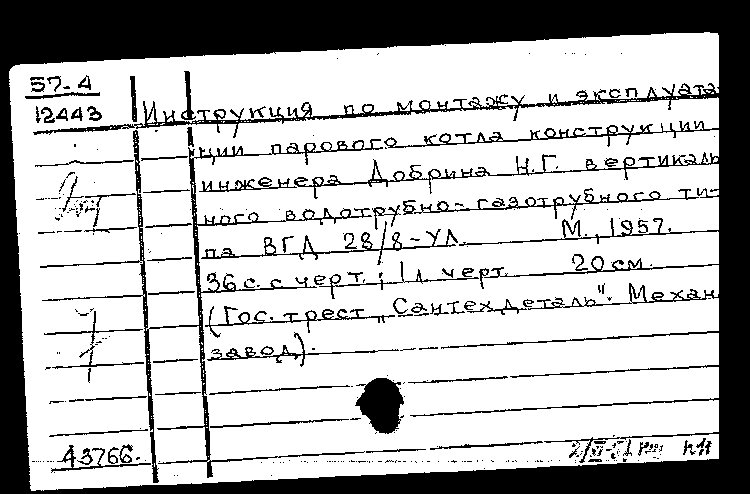 57-4
12443
Инструкция по монтажу и эксплуата-
ции парового котла конструкции
инженера Добрина Н.Г. вертикаль
ного водотрубно-газотрубного ти-
па ВГД 28/8-УЛ. М., 1957.
36 с. с черт.; 1 л. черт. 20 см.
(Гос. трест „Сантехдеталь". Механ.
завод).
7
43766.